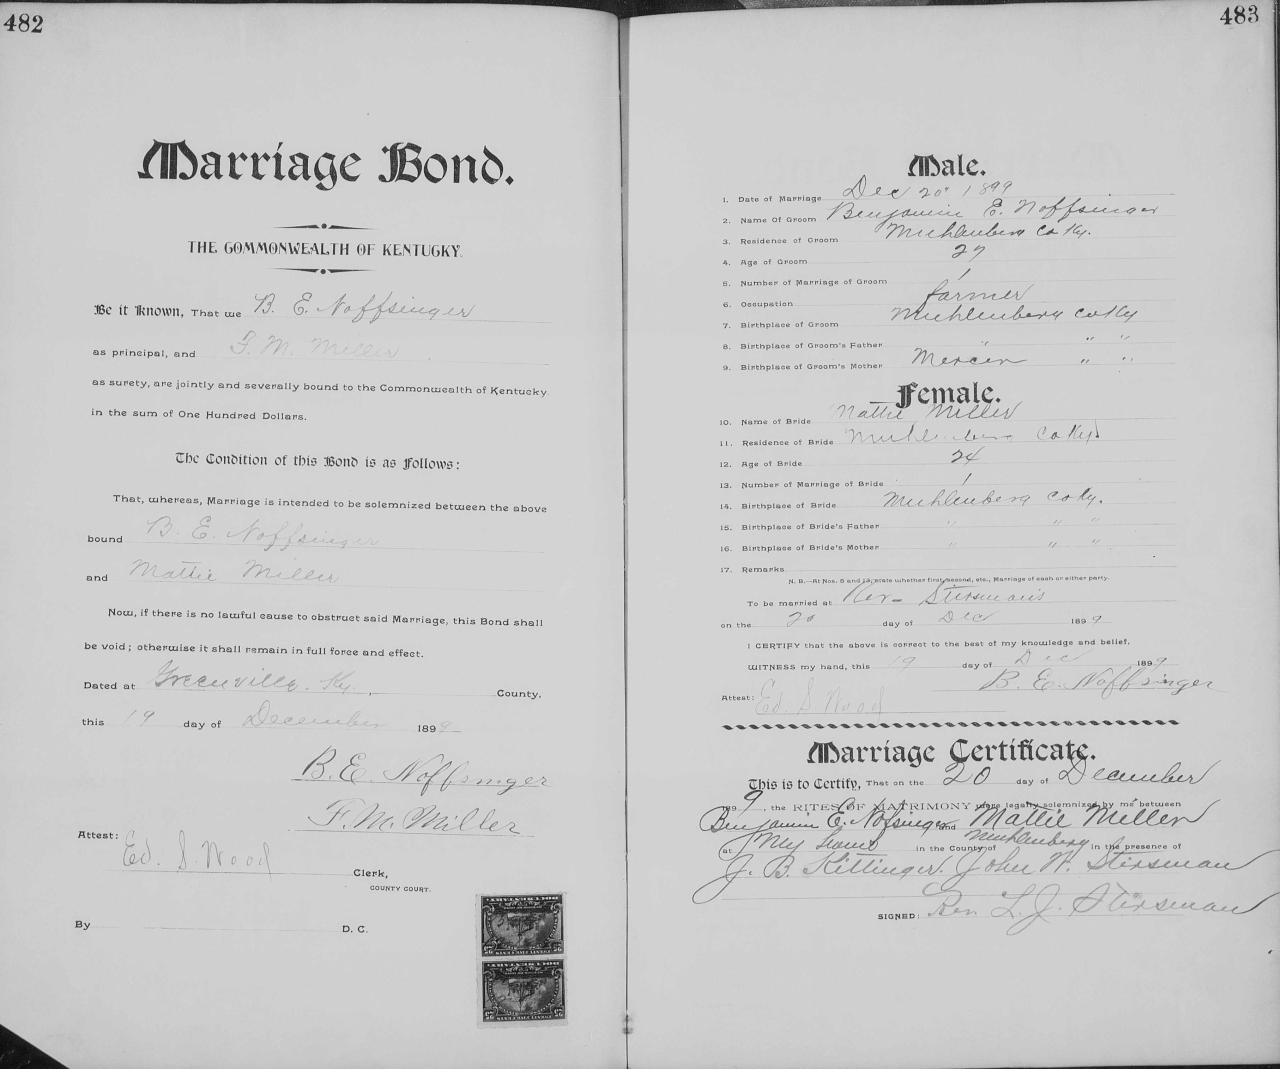 482
Marriage Bond.
THE COMMONWEALTH OF KENTUCKY.
Be it Known, That we B. E. Noffsinger
as principal, and F. M. Miller
as surety, are jointly and severally bound to the Commonwealth of Kentucky
in the sum of One Hundred Dollars.
The Condition of this Bond is as Follows:
That, whereas, Marriage is intended to be solemnized between the above
bound B. E. Noffsinger
and Mattie Miller
Now, if there is no lawful cause to obstruct said Marriage, this Bond shall
be void; otherwise it shall remain in full force and effect.
Dated at Greenville, Ky., County,
this 19 day of December 1899
B. E. Noffsinger
F. M. Miller
Attest:
Ed. S. Wood
Clerk,
COUNTY COURT.
By D. C.
483
Male.
1. Date of Marriage Dec 20" 1899
2. Name Of Groom Benjamin E. Noffsinger
3. Residence of Groom Muhlenberg Co Ky.
4. Age of Groom 27
5. Number of Marriage of Groom 1
6. Occupation farmer
7. Birthplace of Groom Muhlenberg Co Ky
8. Birthplace of Groom's Father " " "
9. Birthplace of Groom's Mother Mercer " "
Female.
10. Name of Bride Mattie Miller
11. Residence of Bride Muhlenberg Co Ky
12. Age of Bride 24
13. Number of Marriage of Bride 1
14. Birthplace of Bride Muhlenberg Co Ky.
15. Birthplace of Bride's Father " " "
16. Birthplace of Bride's Mother " " "
17. Remarks
N. B.—At Nos. 5 and 13, state whether first, second, etc., Marriage of each or either party.
To be married at Rev- Stirsman's
on the 20 day of Dec 1899
I CERTIFY that the above is correct to the best of my knowledge and belief.
WITNESS my hand, this 19 day of Dec 1899
B. E. Noffsinger
Attest: Ed. S. Wood
Marriage Certificate.
This is to Certify, That on the 20 day of December
1899, the RITES OF MATRIMONY were legally solemnized by me between
Benjamin E. Nofsinger and Mattie Miller
at My home in the County of Muhlenberg in the presence of
J. B. Kittinger. John W. Stirsman
SIGNED: Rev. L. J. Stirsman